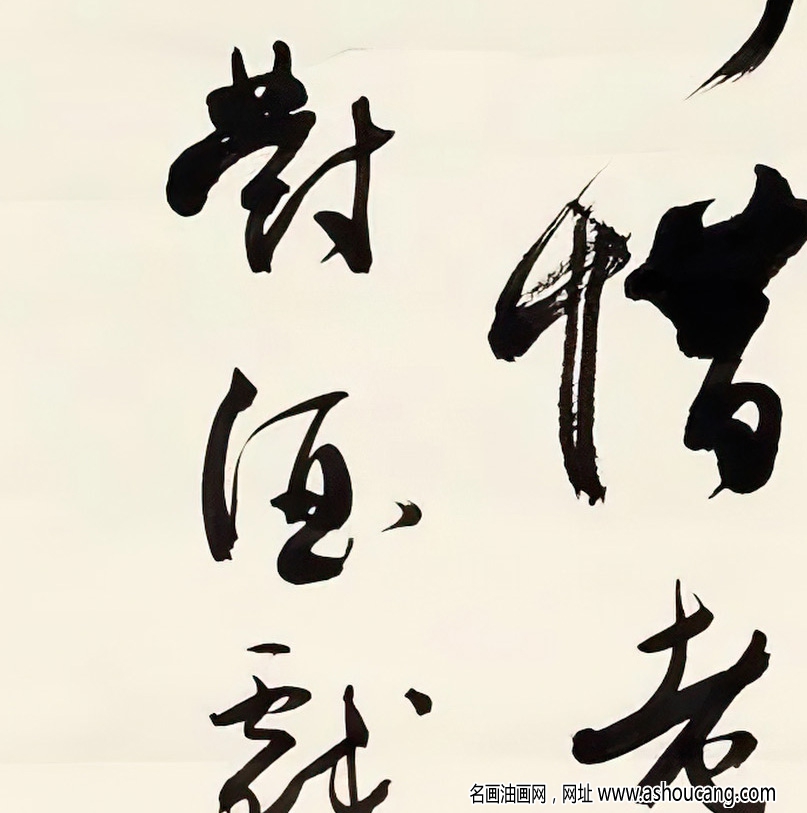 惜者
對酒戲
名画油画网，网址 www.ashoucang.com